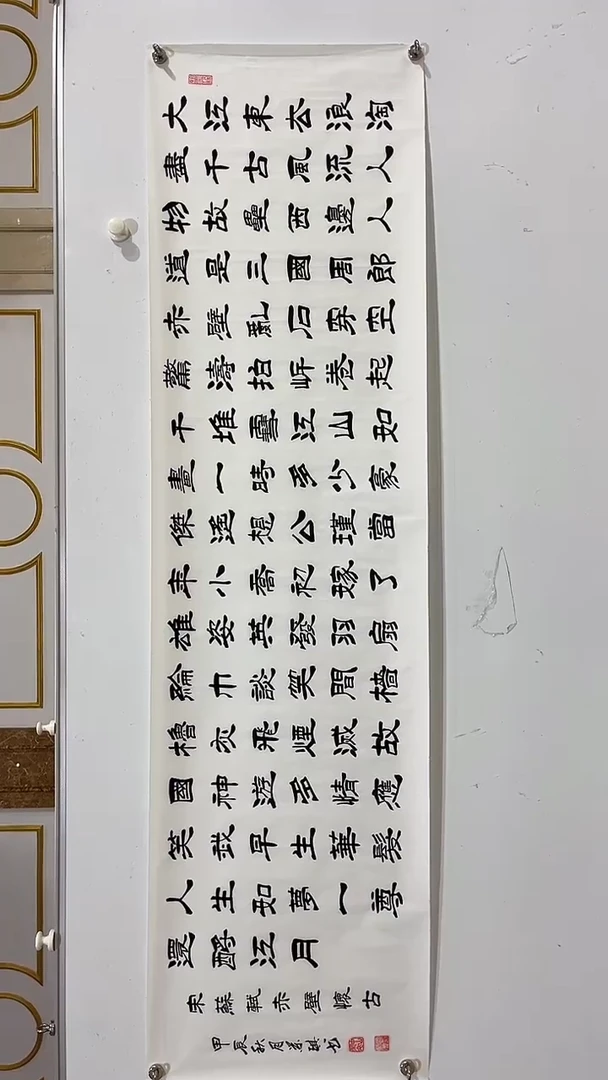 大江東去浪淘
盡千古風流人
物故壘西邊人
道是三國周郎
赤壁亂石穿空
驚濤拍岸卷起
千堆雪江山如
畫一時多少豪
傑遙想公瑾當
年小喬初嫁了
雄姿英發羽扇
綸巾談笑間檣
櫓灰飛煙滅故
國神遊多情應
笑我早生華髮
人生如夢一尊
還酹江月
宋蘇軾赤壁懷古
甲辰秋月